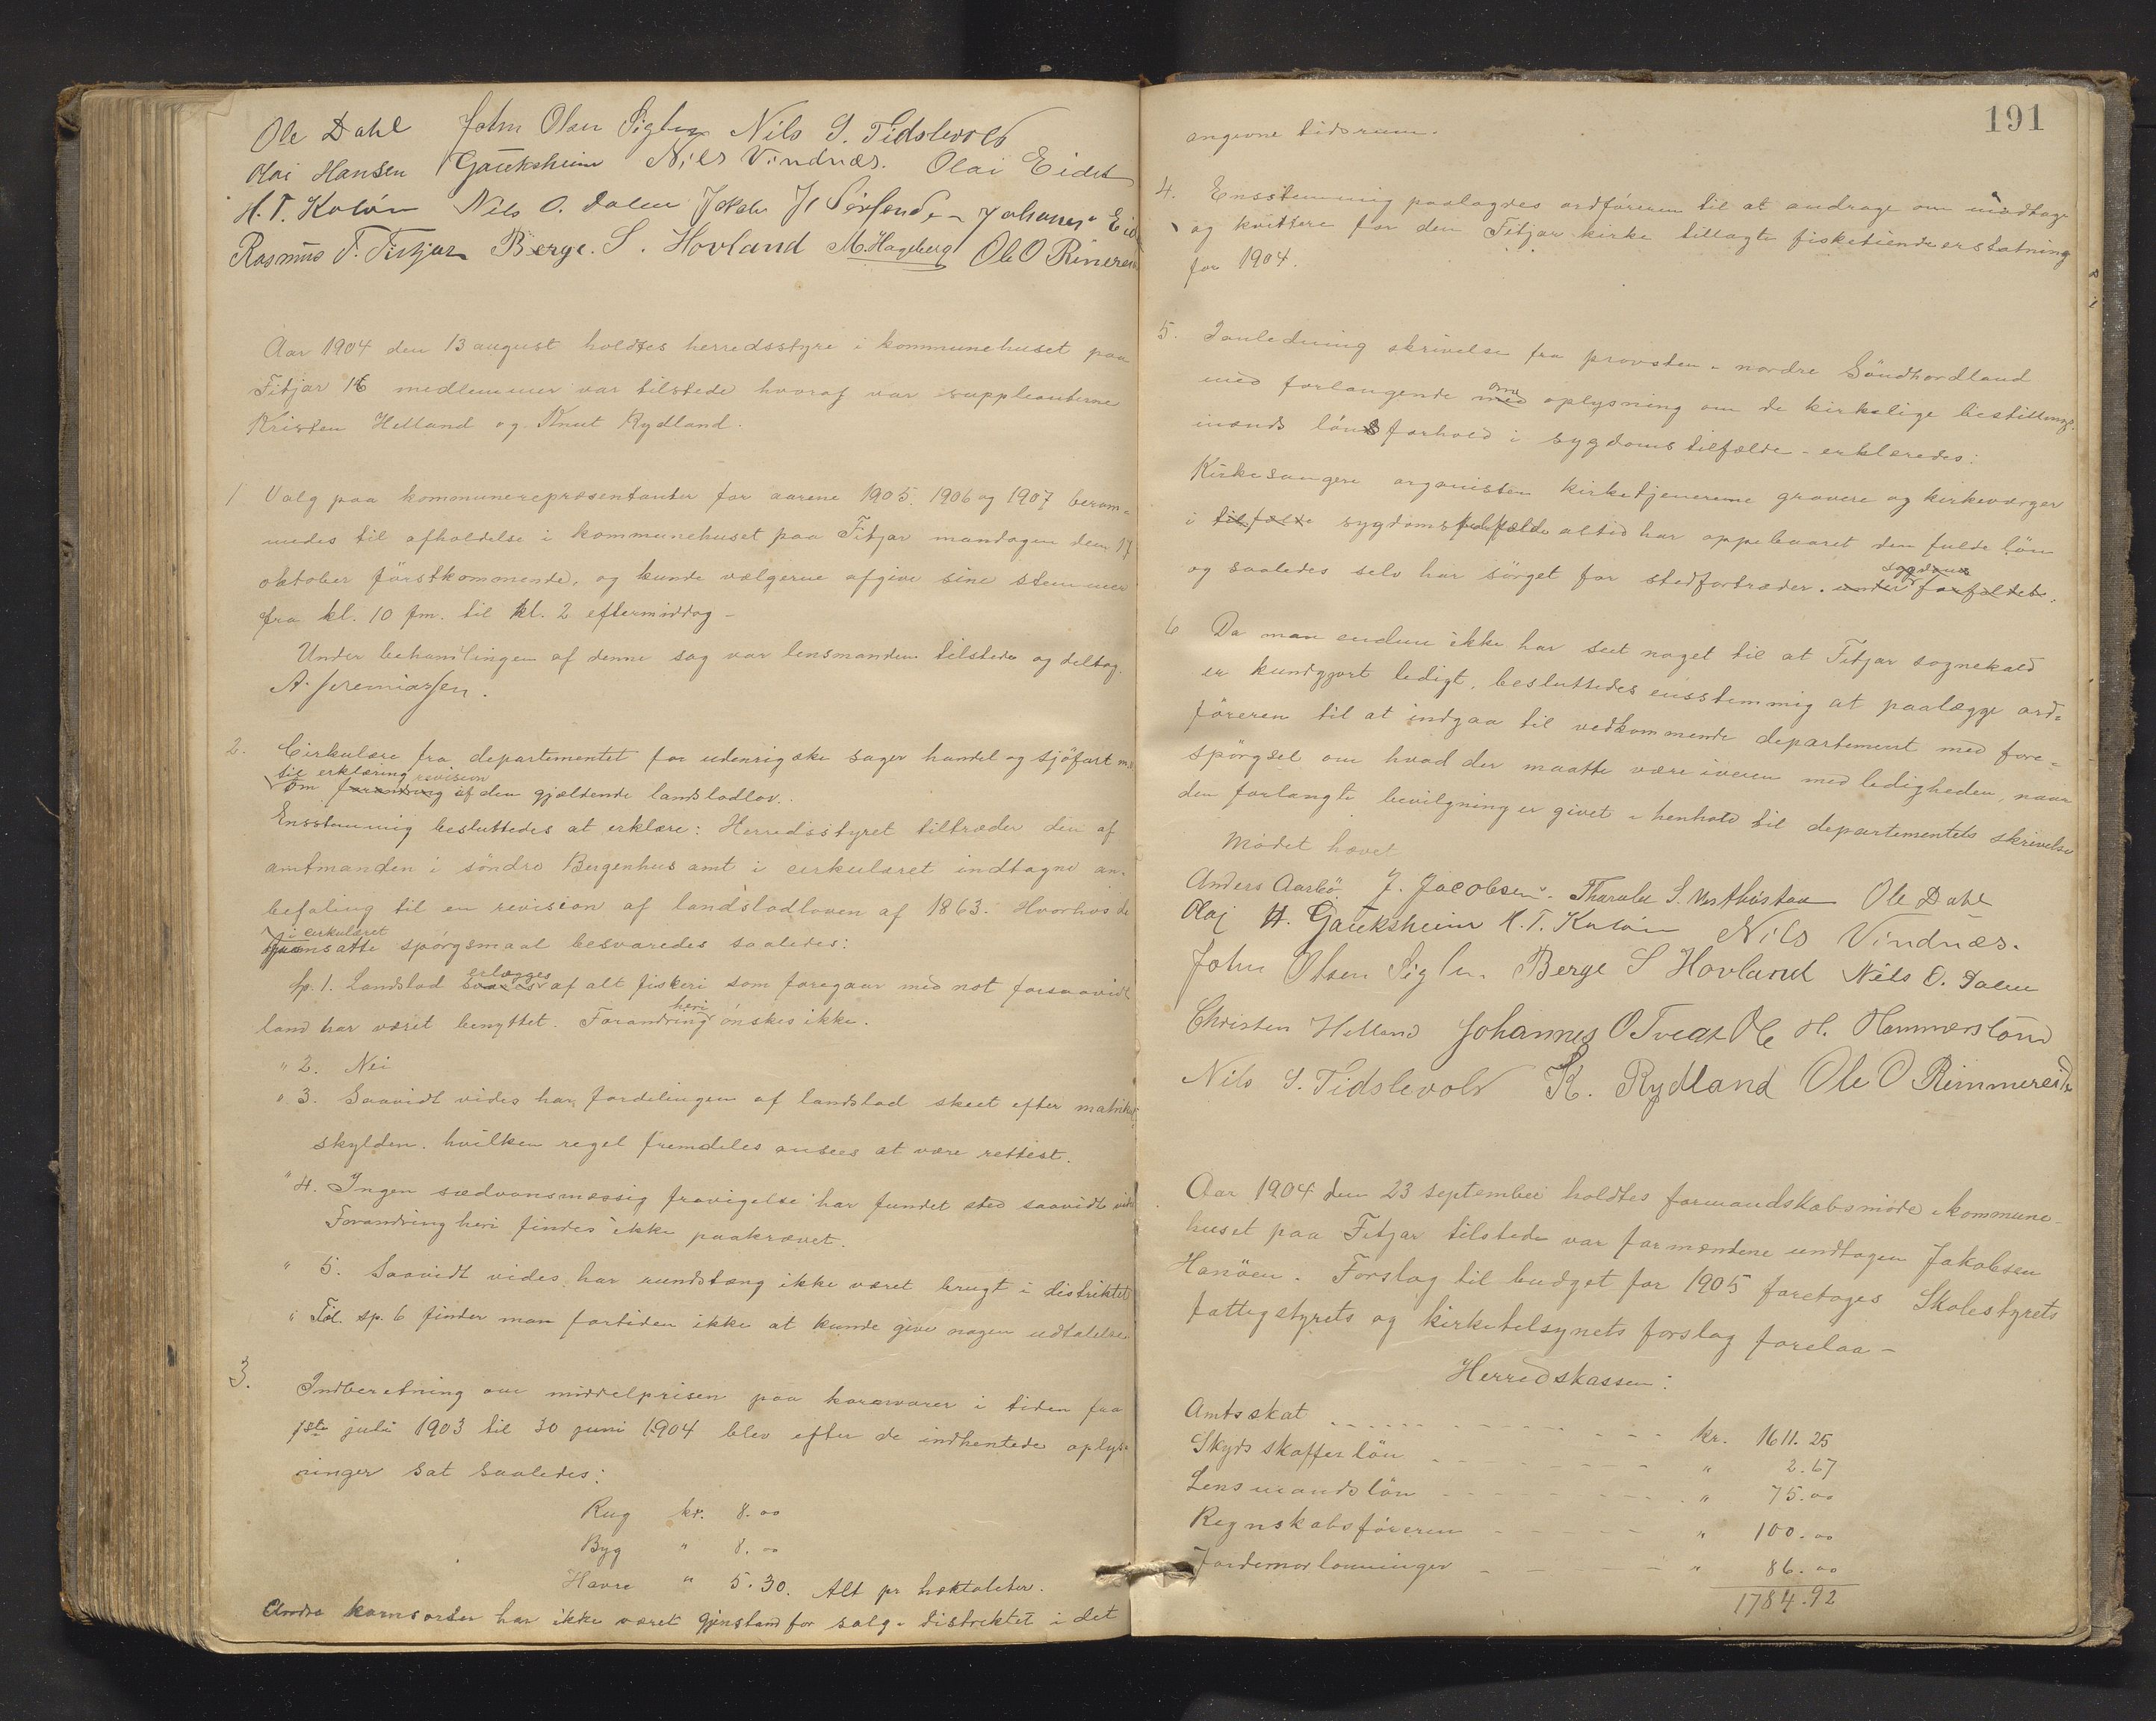 Ole Dahl John Olsen Siglen Nils S. Tidslevold
Olai Hansen Gauksheim Nils Vindnæs. Olai Eidet
H. T. Koløen Nils O. Dalen Jakob J. Johannes Eid
Rasmus T. Fitjar Berge. S. Hovland M. Hageberg Ole O Rimerei
Aar 1904 den 13 august holdtes herredsstyre i kommunehuset paa
Fitjar 16 medlemmer var tilstede hvoraf var suppleanterne
Kristen Helland og Knut Rydland.
1 Valg paa kommunerepræsentanter for aarene 1905. 1906 og 1907 beram-
medes til afholdelse i kommunehuset paa Fitjar mandagen den 17
oktober förstkommende, og kunde vælgerne afgive sine stemmer
fra kl. 10 fm. til kl. 2 eftermiddag –
Under behandlingen af denne sag var lensmanden tilstede og deltog.
A. Jeremiassen.
2. Cirkulære fra departementet for udenrigske sager handel og sjöfart med
til erklæring revision
om forandring af den gjældende landslodlov.
Ensstemmig besluttedes at erklære: Herredsstyret tiltræder den af
amtmanden i söndre Bergenhus amt i cirkulæret indtagne an-
befaling til en revision af landslodloven af 1863. Hvorhos de
i cirkulæret
fremsatte spörgsmaal besvaredes saaledes:
Sp. 1. Landslod erlægges af alt fiskeri som foregaar med not forsaavidt
land har været benyttet. Forandring heri önskes ikke.
" 2. Nei
" 3. Saavidt vides har fordelingen af landslod skeet efter matrikul-
skylden. hvilken regel fremdeles ansees at være rettest.
" 4. Ingen sædvansmæssig fravigelse har fundet sted saavidt vides
Forandring heri findes ikke paakrævet.
" 5. Saavidt vides har rundstæng ikke været brugt i distriktet
" Til sp. 6 finder man fortiden ikke at kunde give nogen udtalelse.
3. Indberetning om middelprisen paa kornvarer i tiden fra
1ste juli 1903 til 30 juni 1904 blev efter de indhentede oplys-
ninger sat saaledes:
Rug kr. 8.00
Byg " 8.00
Havre " 5.30. Alt pr hektoliter.
Andre kornsorter har ikke været gjenstand for salg i distriktet i det
191
angivne tidsrum.
4. Ensstemmig paalagdes ordföreren til at andrage om modtage
og kvittere for den Fitjar kirke tillagte fisketiendeerstatning
for 1904.
5. I anledning skrivelse fra provsten i nordre Söndhordland
med forlangende om oplysning om de kirkelige bestillings-
mænds lönsforhold i sygdomstilfælde – erklæredes:
Kirkesangere organisten kirketjenerne gravere og kirkeværger
i tilfælde sygdomstilfælde altid har oppebaaret den fulde lön
og saaledes selv har sörget for stedfortræder. under sygdoms forfaldet.
6 Da man endnu ikke har seet noget til at Fitjar sognekald
er kundgjort ledigt, besluttedes ensstemmig at paalægge ord-
föreren til at indgaa til vedkommende departement med fore-
spörgsel om hvad der maatte være iveien med ledigheden, naar
den forlangte bevilgning er givet i henhold til departementets skrivelse
Mödet hævet
Anders Aarbö J. Jacobsen. Tharald S. Vestbøstad Ole Dahl
Olaj H. Gauksheim H. T. Koløen Nils Vindnæs.
John Olsen Siglen Berge S Hovland Nils O. Dalen
Christen Helland Johannes O Tveit Ole H. Hammerslånd
Nils S. Tidslevold K. Rydland Ole O Rimmereide
Aar 1904 den 23 september holdtes formandskabsmöde i kommune-
huset paa Fitjar tilstede var formændene undtagen Jakobsen
Hanöen. Forslag til budget for 1905 foretoges Skolestyrets
fattigstyrets og kirketilsynets forslag forelaa –
Herredskassen:
Amtsskat kr. 1611.25
Skydsskafferlön " 2.67
Lensmandslön " 75.00
Regnskabsföreren " 100.00
Jordemorlönninger " 86.00
1784.92